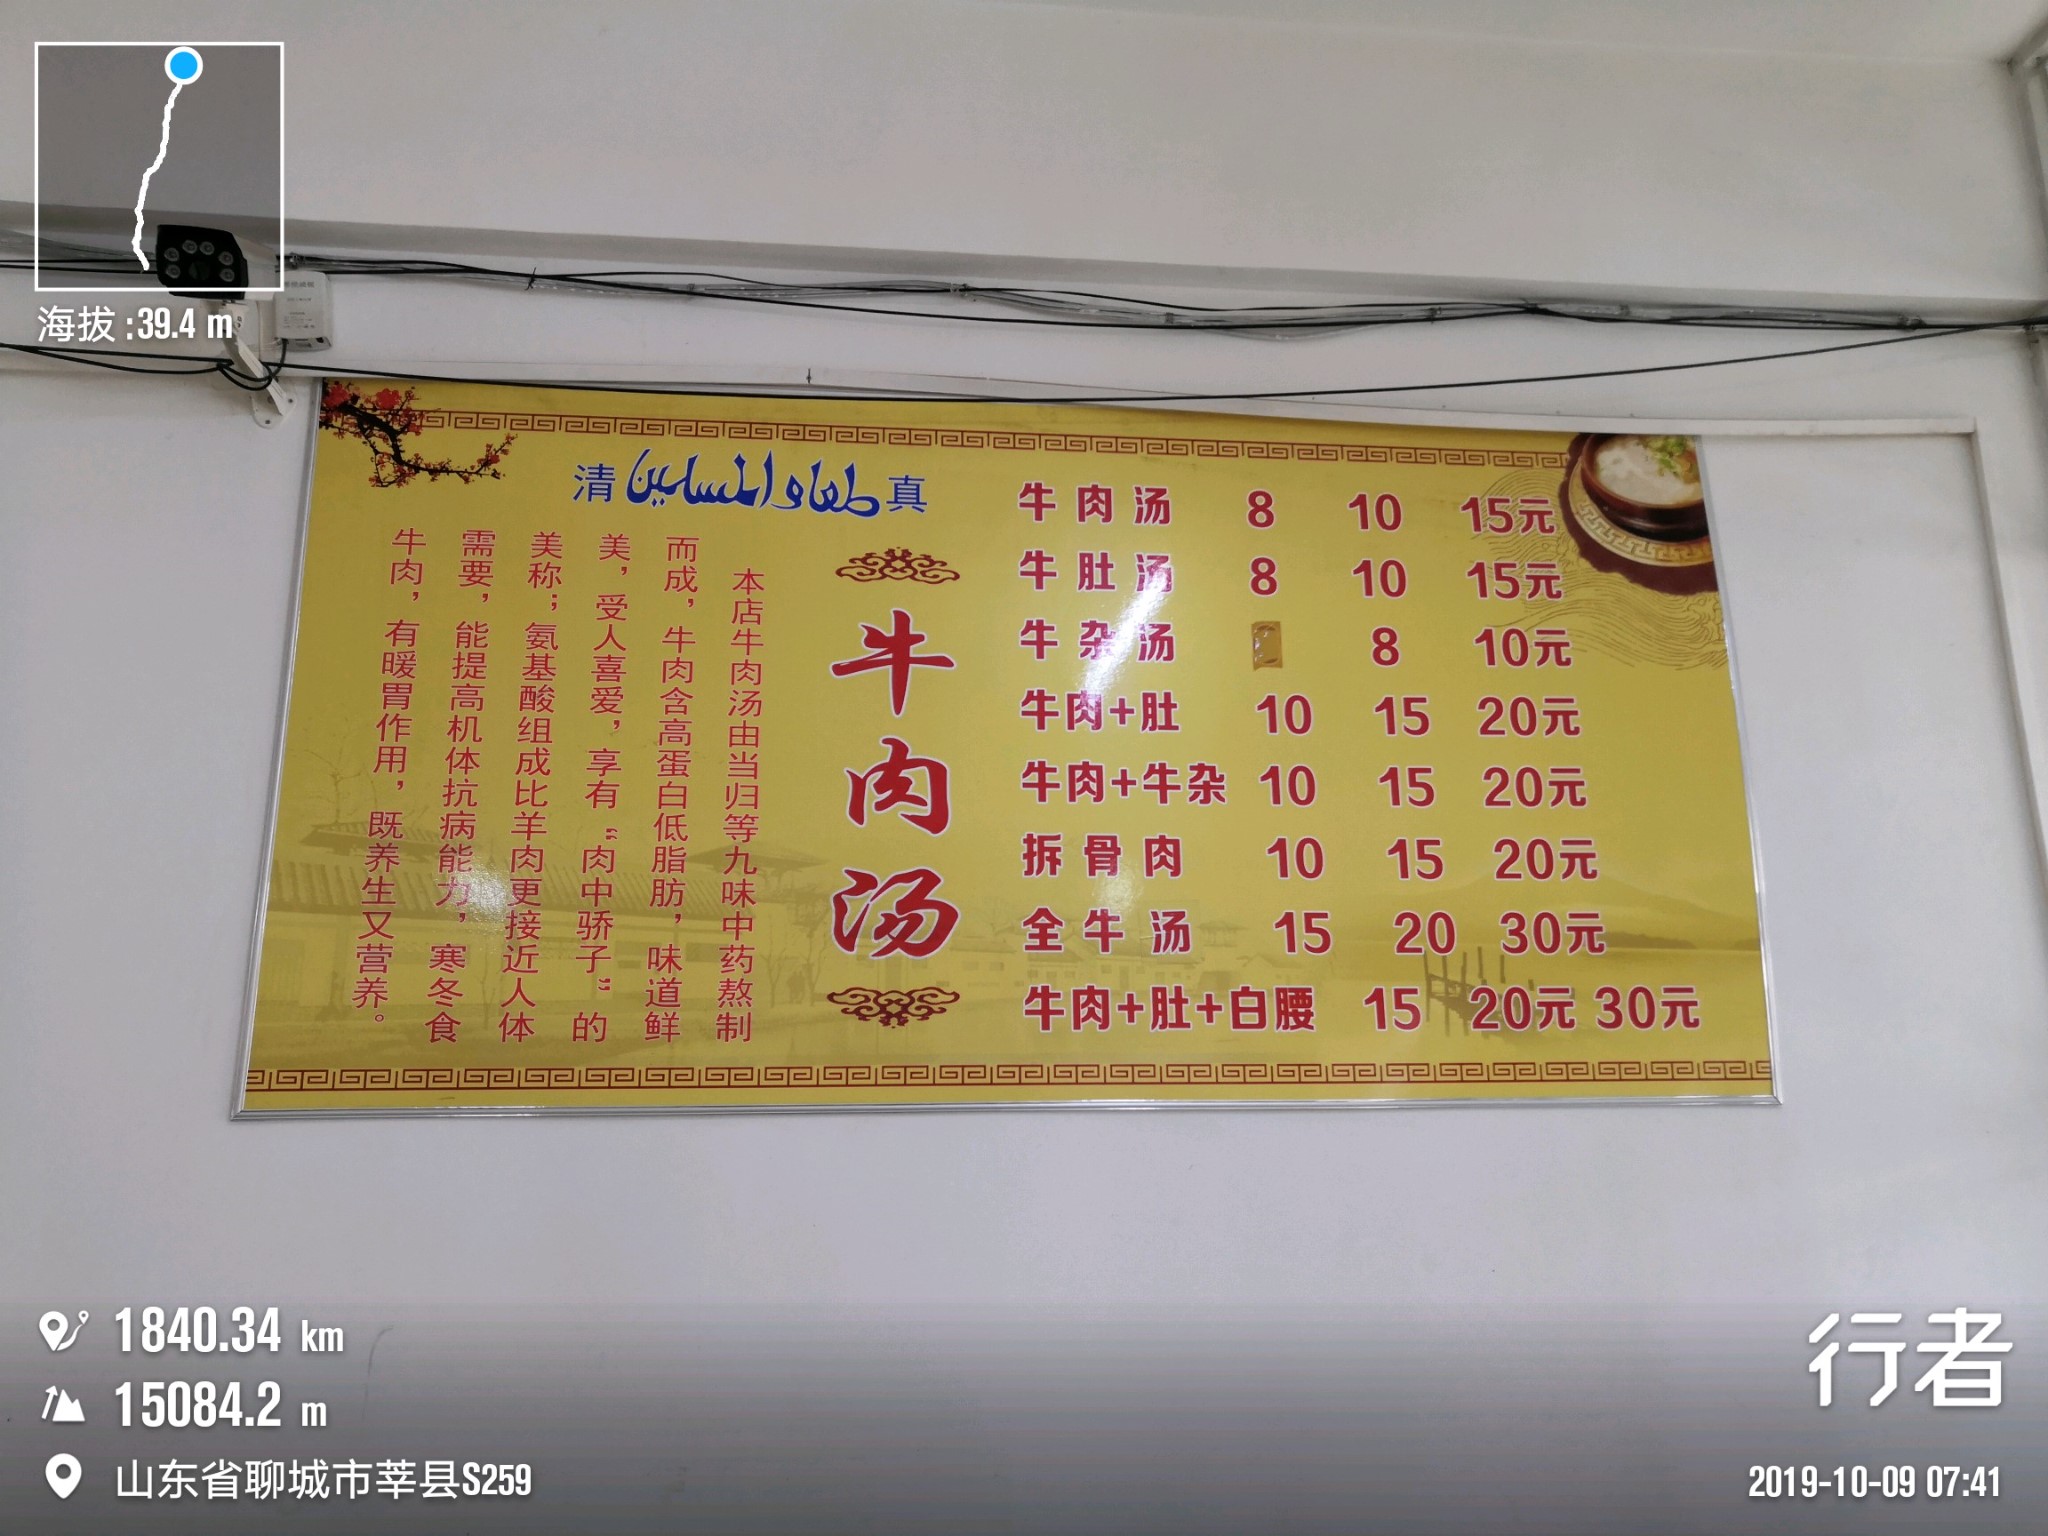 海拔 :39.4 m
清 طعام المسلمين 真
牛肉汤
本店牛肉汤由当归等九味中药熬制
而成，牛肉含高蛋白低脂肪，味道鲜
美，受人喜爱，享有“肉中骄子”的
美称；氨基酸组成比羊肉更接近人体
需要，能提高机体抗病能力，寒冬食
牛肉，有暖胃作用，既养生又营养。
牛肉汤 8 10 15元
牛肚汤 8 10 15元
牛杂汤 8 10元
牛肉+肚 10 15 20元
牛肉+牛杂 10 15 20元
拆骨肉 10 15 20元
全牛汤 15 20 30元
牛肉+肚+白腰 15 20元 30元
1840.34 km
15084.2 m
山东省聊城市莘县S259
行者
2019-10-09 07:41